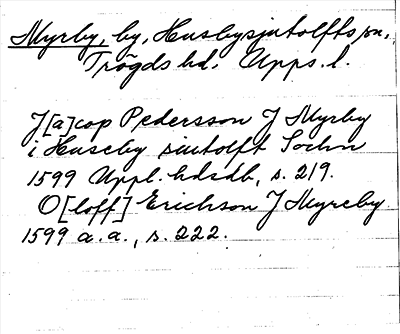 Myrby, by, Husbysjutolfts sn,
Trögds hd, Upps. l.
J[a]cop Pedersson J Myrby
i Huseby siutolft Sochn
1599 Uppl. hdsdb, s. 219.
O[loff] Erichson J Myreby
1599 a.a., s. 222.